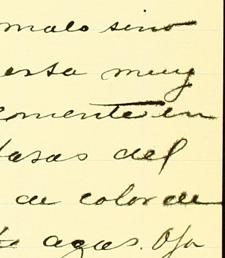 malo sino
esta muy
comente en
tasas del
de color de
te agas. Ofa